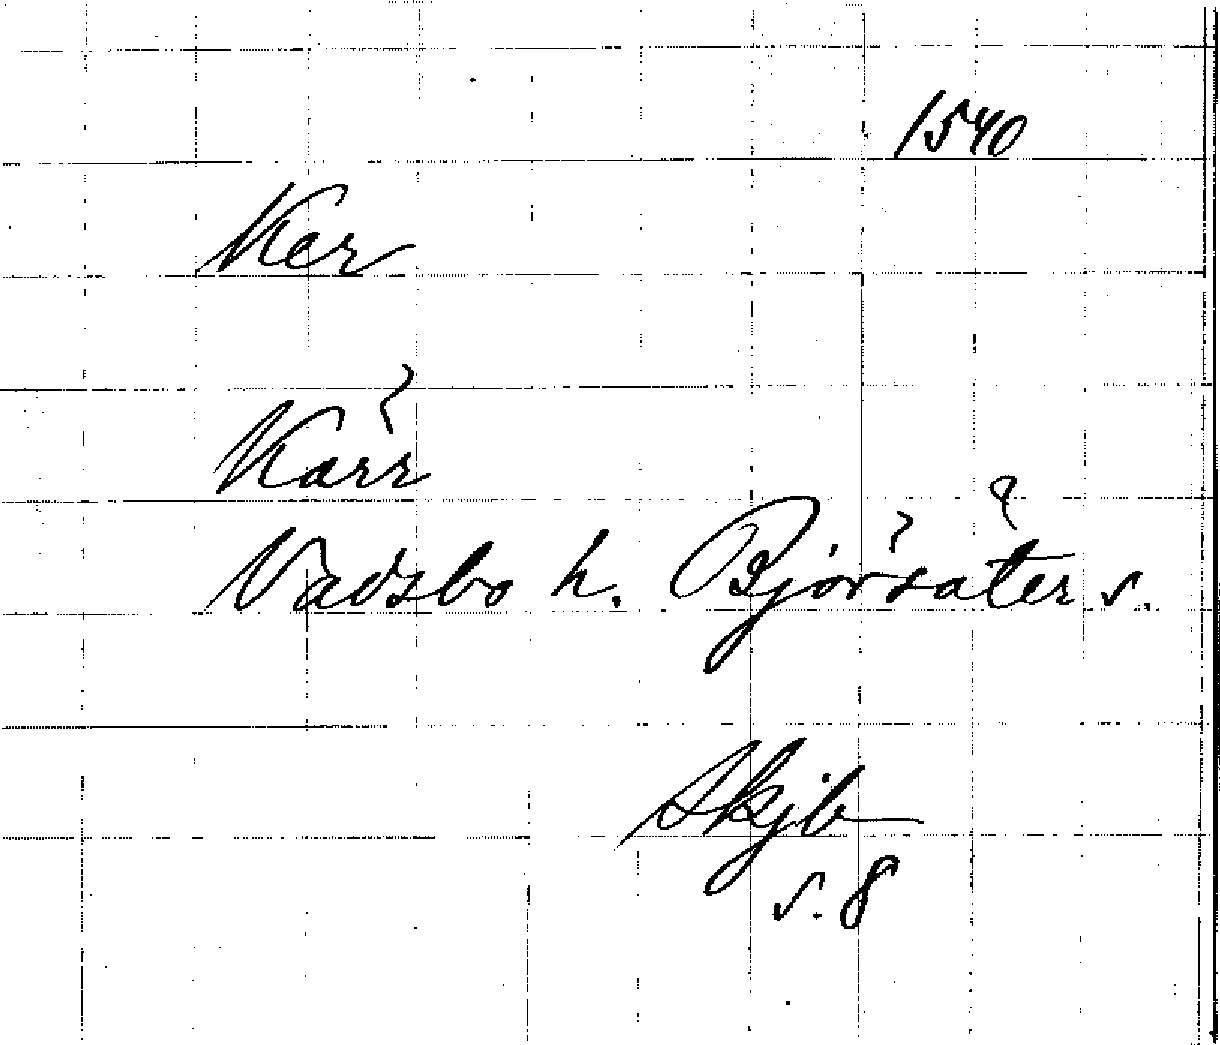 1540
Ker
Kärr
Vadsbo h. Björsäter s.
Skjb
s. 8